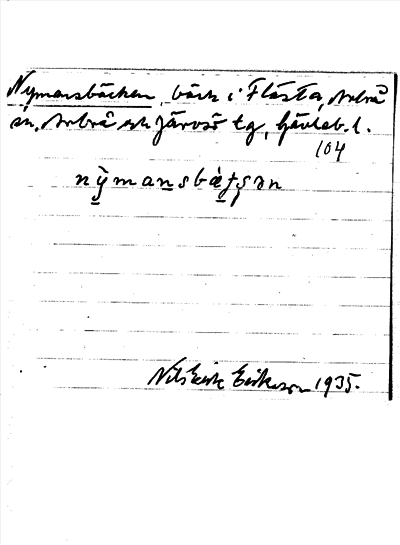 Nymansbäcken, bäck i Flästa, Arbrå
sn, Arbrå och Järvsö tg, Gävleb. l.
104
nỳmansbàtʂən
Nils Erik Eriksson 1935.